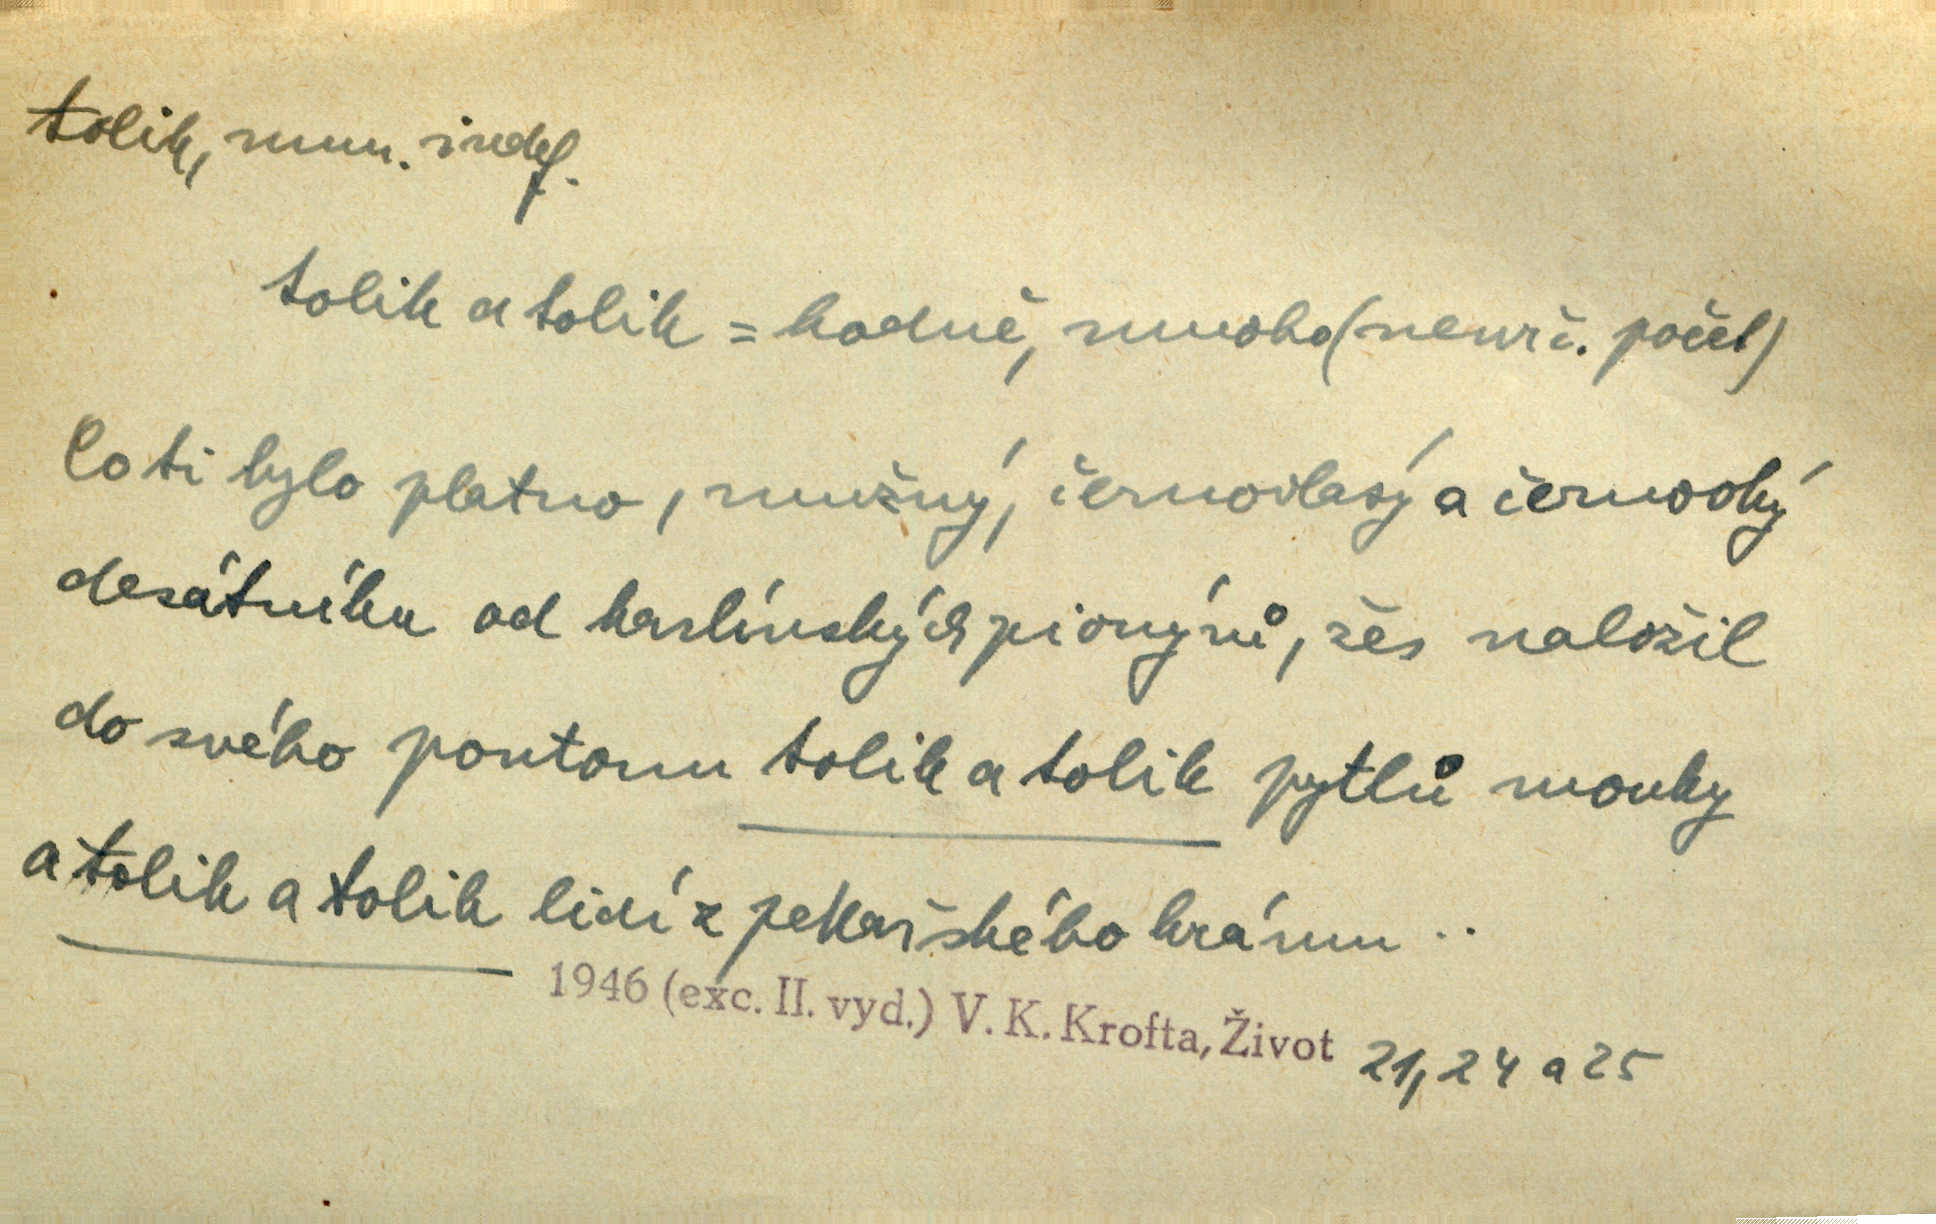 tolik, num. indef.
tolik a tolik = hodně, mnoho (neurč. počet)
Co ti bylo platno, mužný, černovlasý a černooký
desátníku od karlínských pionýrů, žes naložil
do svého pontonu tolik a tolik pytlů mouky
a tolik a tolik lidí z pekařského krámu ..
1946 (exc. II. vyd.) V. K. Krofta, Život 21, 24 a 25